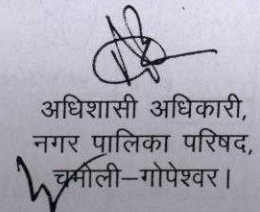 अधिशासी अधिकारी,
नगर पालिका परिषद,
चमोली–गोपेश्वर।